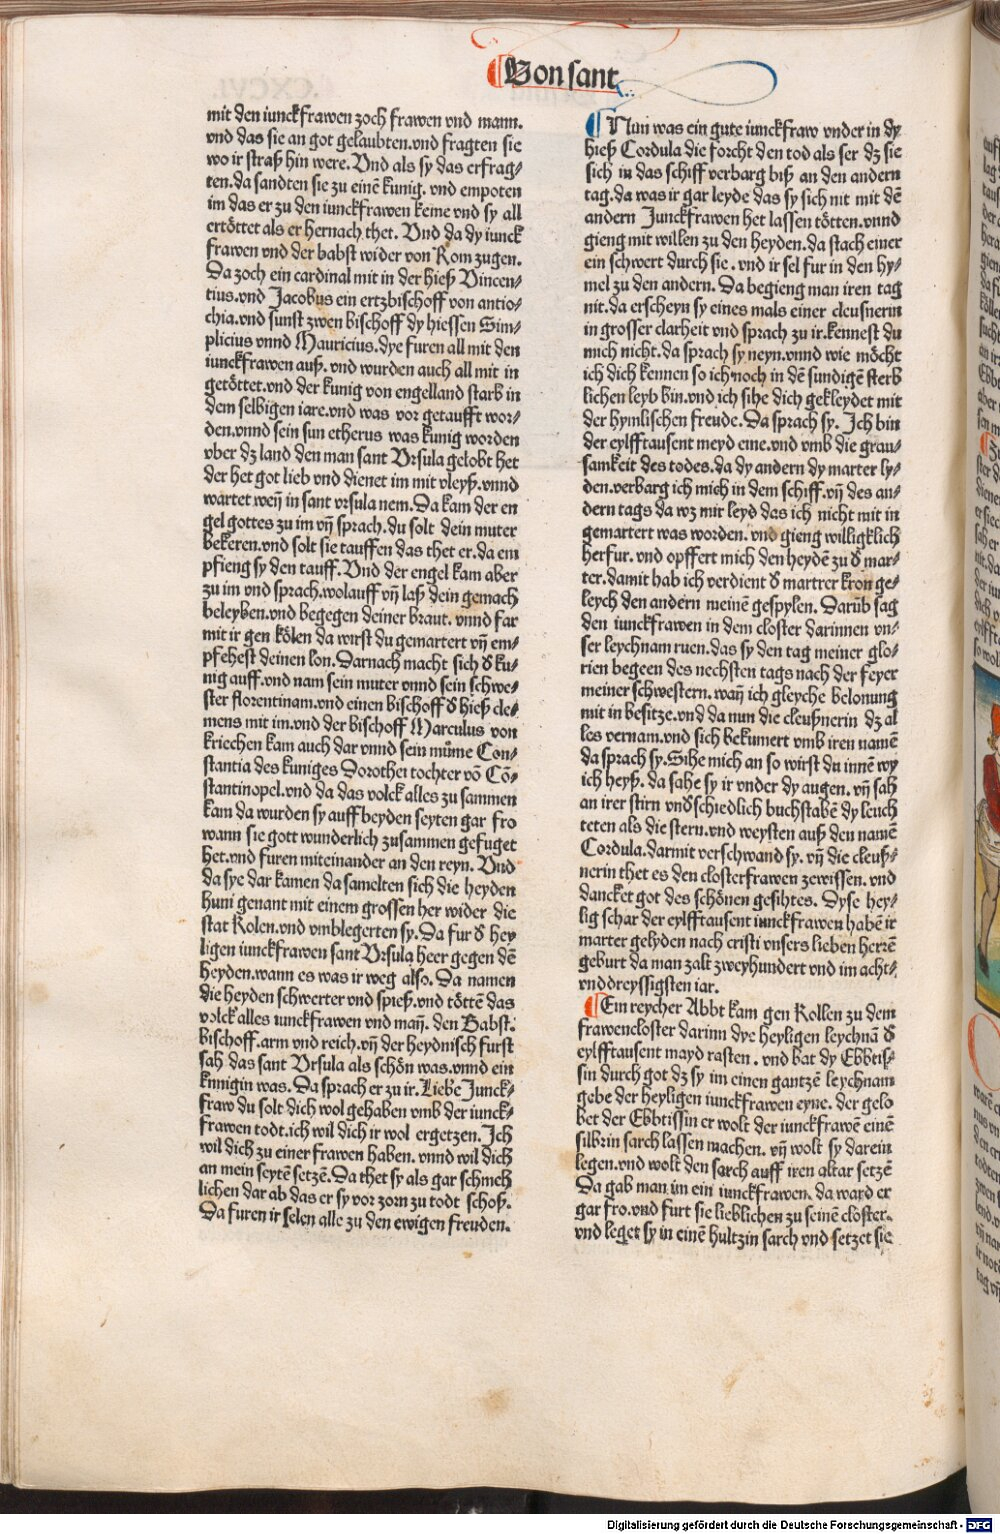 Von sant
mit den iunckfrawen zoch frawen vnd mann.
vnd das sie an got gelaubten.vnd fragten sie
wo ir straß hin were. Vnd als sy das erfrag-
ten.da sandten sie zu einē kunig. vnd empoten
im das er zu den iunckfrawen keme vnd sy all
ertöttet als er hernach thet. Vnd da dy iunck
frawen vnd der babst wider von Rom zugen.
Da zoch ein cardinal mit in der hieß Vincen-
tius.vnd Jacobus ein ertzbischoff von antio-
chia.vnd sunst zwen bischoff dy hiessen Sim-
plicius vnnd Mauricius.dye furen all mit den
iunckfrawen auß. vnd wurden auch all mit in
getöttet.vnd der kunig von engelland starb in
dem selbigen iare.vnd was vor getaufft wor-
den.vnnd sein sun etherus was kunig worden
vber dz land den man sant Vrsula gelobt het
der het got lieb vnd dienet im mit vleyß.vnnd
wartet weñ in sant vrsula nem. Da kam der en
gel gottes zu im vñ sprach.du solt dein muter
bekeren.vnd solt sie tauffen das thet er.da em
pfieng sy den tauff. Vnd der engel kam aber
zu im vnd sprach.wolauff vñ laß dein gemach
beleyben.vnd begegen deiner braut. vnnd far
mit ir gen kölen da wirst du gemartert vñ em-
pfehest deinen lon. Darnach macht sich d̕ ku-
nig auff.vnd nam sein muter vnnd sein schwe-
ster florentinam.vnd einen bischoff d̕ hieß cle-
mens mit im.vnd der bischoff Marculus von
kriechen kam auch dar vnnd sein mūme Con-
stantia des kuniges Dorothei tochter vō Cō-
stantinopel.vnd da das volck alles zu sammen
kam da wurden sy auff beyden seyten gar fro
wann sie gott wunderlich zusammen gefuget
het.vnd furen miteinander an den reyn. Vnd
da sye dar kamen da samelten sich die heyden
huni genant mit einem grossen her wider die
stat Kolen.vnd vmblegerten sy. Da fur d̕ hey
ligen iunckfrawen sant Vrsula heer gegen dē
heyden.wann es was ir weg also. Da namen
die heyden schwerter vnd spieß.vnd töttē das
volck alles iunckfrawen vnd mañ. den Babst.
bischoff.arm vnd reich.vñ der heydnisch furst
sah das sant Vrsula als schön was.vnnd ein
kunigin was. Da sprach er zu ir. Liebe Junck-
fraw du solt dich wol gehaben vmb der iunck-
frawen todt.ich wil dich ir wol ergetzen. Ich
wil dich zu einer frawen haben. vnnd wil dich
an mein seytē setzē. Da thet sy als gar schmeh
lichen dar ab das er sy vor zorn zu todt schoß.
Da furen ir selen alle zu den ewigen freuden.
Nun was ein gute iunckfraw vnder in dy
hieß Cordula die forcht den tod als ser dz sie
sich in das schiff verbarg biß an den andern
tag.da was ir gar leyde das sy sich nit mit dē
andern Junckfrawen het lassen tötten.vnnd
gieng mit willen zu den heyden.da stach einer
ein schwert durch sie . vnd ir sel fur in den hy-
mel zu den andern. Da begieng man iren tag
nit.da erscheyn sy eines mals einer cleusnerin
in grosser clarheit vnd sprach zu ir.kennest du
mich nicht.da sprach sy neyn.vnnd wie möcht
ich dich kennen so ich noch in dē sundigē sterb
lichen leyb bin.vnd ich sihe dich gekleydet mit
der hymlischen freude. Da sprach sy. Ich bin
der eylfftausent meyd eine.vnd vmb die grau-
samkeit des todes.da dy andern dy marter ly-
den.verbarg ich mich in dem schiff.vñ des an-
dern tags da wz mir leyd das ich nicht mit in
gemartert was worden. vnd gieng willigklich
herfur. vnd opffert mich den heydē zu d̕ mar-
ter.damit hab ich verdient d̕ martrer kron ge-
leych den andern meinē gespylen. Darūb sag
den iunckfrawen in dem closter darinnen vn-
ser leychnam ruen.das sy den tag meiner glo-
rien begeen des nechsten tags nach der feyer
meiner schwestern.wañ ich gleyche belonung
mit in besitze.vnd da nun die cleußnerin dz al
les vernam.vnd sich bekumert vmb iren namē
da sprach sy. Sihe mich an so wirst du innē wy
ich heyß. da sahe sy ir vnder dy augen. vñ sah
an irer stirn vnd̕schiedlich buchstabē dy leuch
teten als die stern.vnd weysten auß den namē
Cordula.darmit verschwand sy. vñ die cleuß-
nerin thet es den closterfrawen zewissen. vnd
dancket got des schönen gesihtes. Dyse hey-
lig schar der eylfftausent iunckfrawen habē ir
marter gelyden nach cristi vnsers lieben herrē
geburt da man zalt zweyhundert vnd im acht-
vnddreyssigsten iar.
Ein reycher Abbt kam gen Kollen zu dem
frawencloster darinn dye heyligen leychnā d̕
eylfftausent mayd rasten . vnd bat dy Ebbtis-
sin durch got dz sy im einen gantzē leychnam
gebe der heyligen iunckfrawen eyne. der gelo
bet der Ebbtissin er wolt der iunckfrawē einē
silbrin sarch lassen machen. vñ wolt sy darein
legen.vnd wolt den sarch auff iren altar setzē
Da gab man im ein iunckfrawen. da ward er
gar fro.vnd furt sie lieblichen zu seinē closter.
vnd leget sy in einē hultzin sarch vnd setzet sie
Digitalisierung gefördert durch die Deutsche Forschungsgemeinschaft - DFG